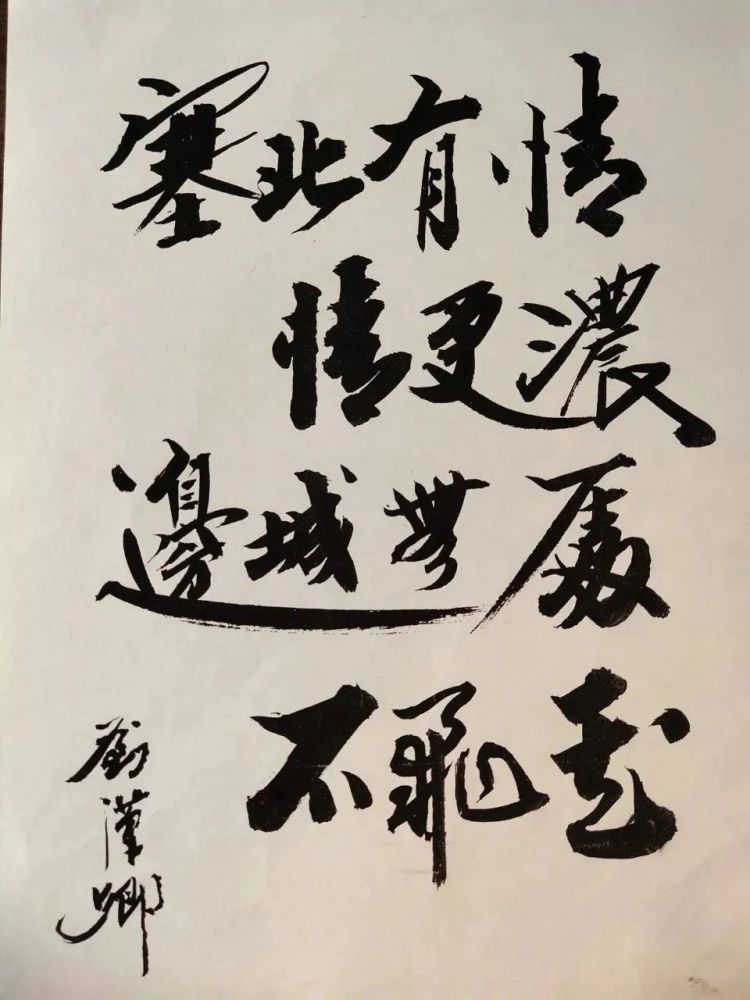 塞北有情
情更濃
邊城無處
不飛花
劉漢卿